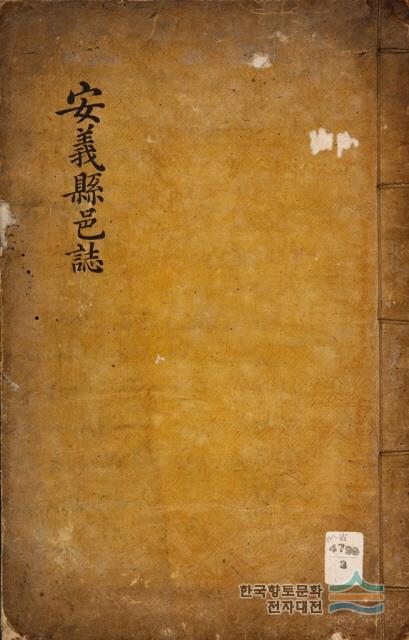 安義縣邑誌
古
4799
3
한국향토문화
전자대전